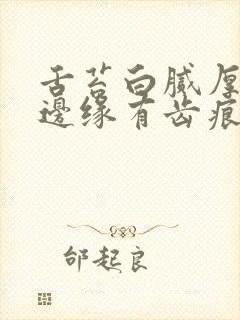 舌苔白腻厚
邊缘有齿痕
邰起良